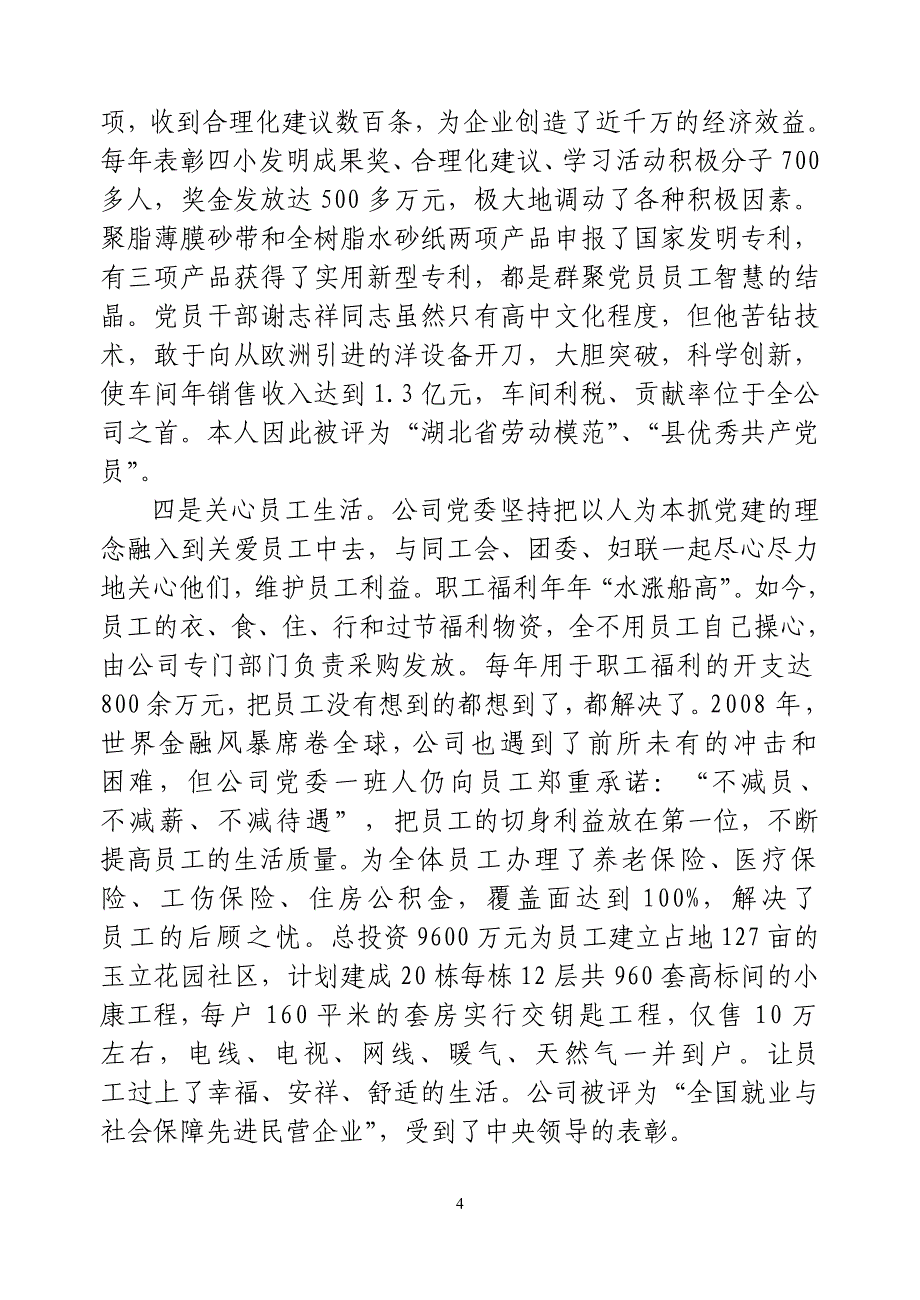 项，收到合理化建议数百条，为企业创造了近千万的经济效益。
每年表彰四小发明成果奖、合理化建议、学习活动积极分子 700
多人，奖金发放达 500 多万元，极大地调动了各种积极因素。
聚脂薄膜砂带和全树脂水砂纸两项产品申报了国家发明专利，
有三项产品获得了实用新型专利，都是群聚党员员工智慧的结
晶。党员干部谢志祥同志虽然只有高中文化程度，但他苦钻技
术，敢于向从欧洲引进的洋设备开刀，大胆突破，科学创新，
使车间年销售收入达到 1.3 亿元，车间利税、贡献率位于全公
司之首。本人因此被评为“湖北省劳动模范”、“县优秀共产党
员”。
四是关心员工生活。公司党委坚持把以人为本抓党建的理
念融入到关爱员工中去，与同工会、团委、妇联一起尽心尽力
地关心他们，维护员工利益。职工福利年年“水涨船高”。如今，
员工的衣、食、住、行和过节福利物资，全不用员工自己操心，
由公司专门部门负责采购发放。每年用于职工福利的开支达
800 余万元，把员工没有想到的都想到了，都解决了。2008 年，
世界金融风暴席卷全球，公司也遇到了前所未有的冲击和
困难，但公司党委一班人仍向员工郑重承诺：“不减员、
不减薪、不减待遇”，把员工的切身利益放在第一位，不断
提高员工的生活质量。为全体员工办理了养老保险、医疗保
险、工伤保险、住房公积金，覆盖面达到 100%，解决了
员工的后顾之忧。总投资 9600 万元为员工建立占地 127 亩的
玉立花园社区，计划建成 20 栋每栋 12 层共 960 套高标间的小
康工程，每户 160 平米的套房实行交钥匙工程，仅售 10 万
左右，电线、电视、网线、暖气、天然气一并到户。让员
工过上了幸福、安祥、舒适的生活。公司被评为“全国就业与
社会保障先进民营企业”，受到了中央领导的表彰。
4